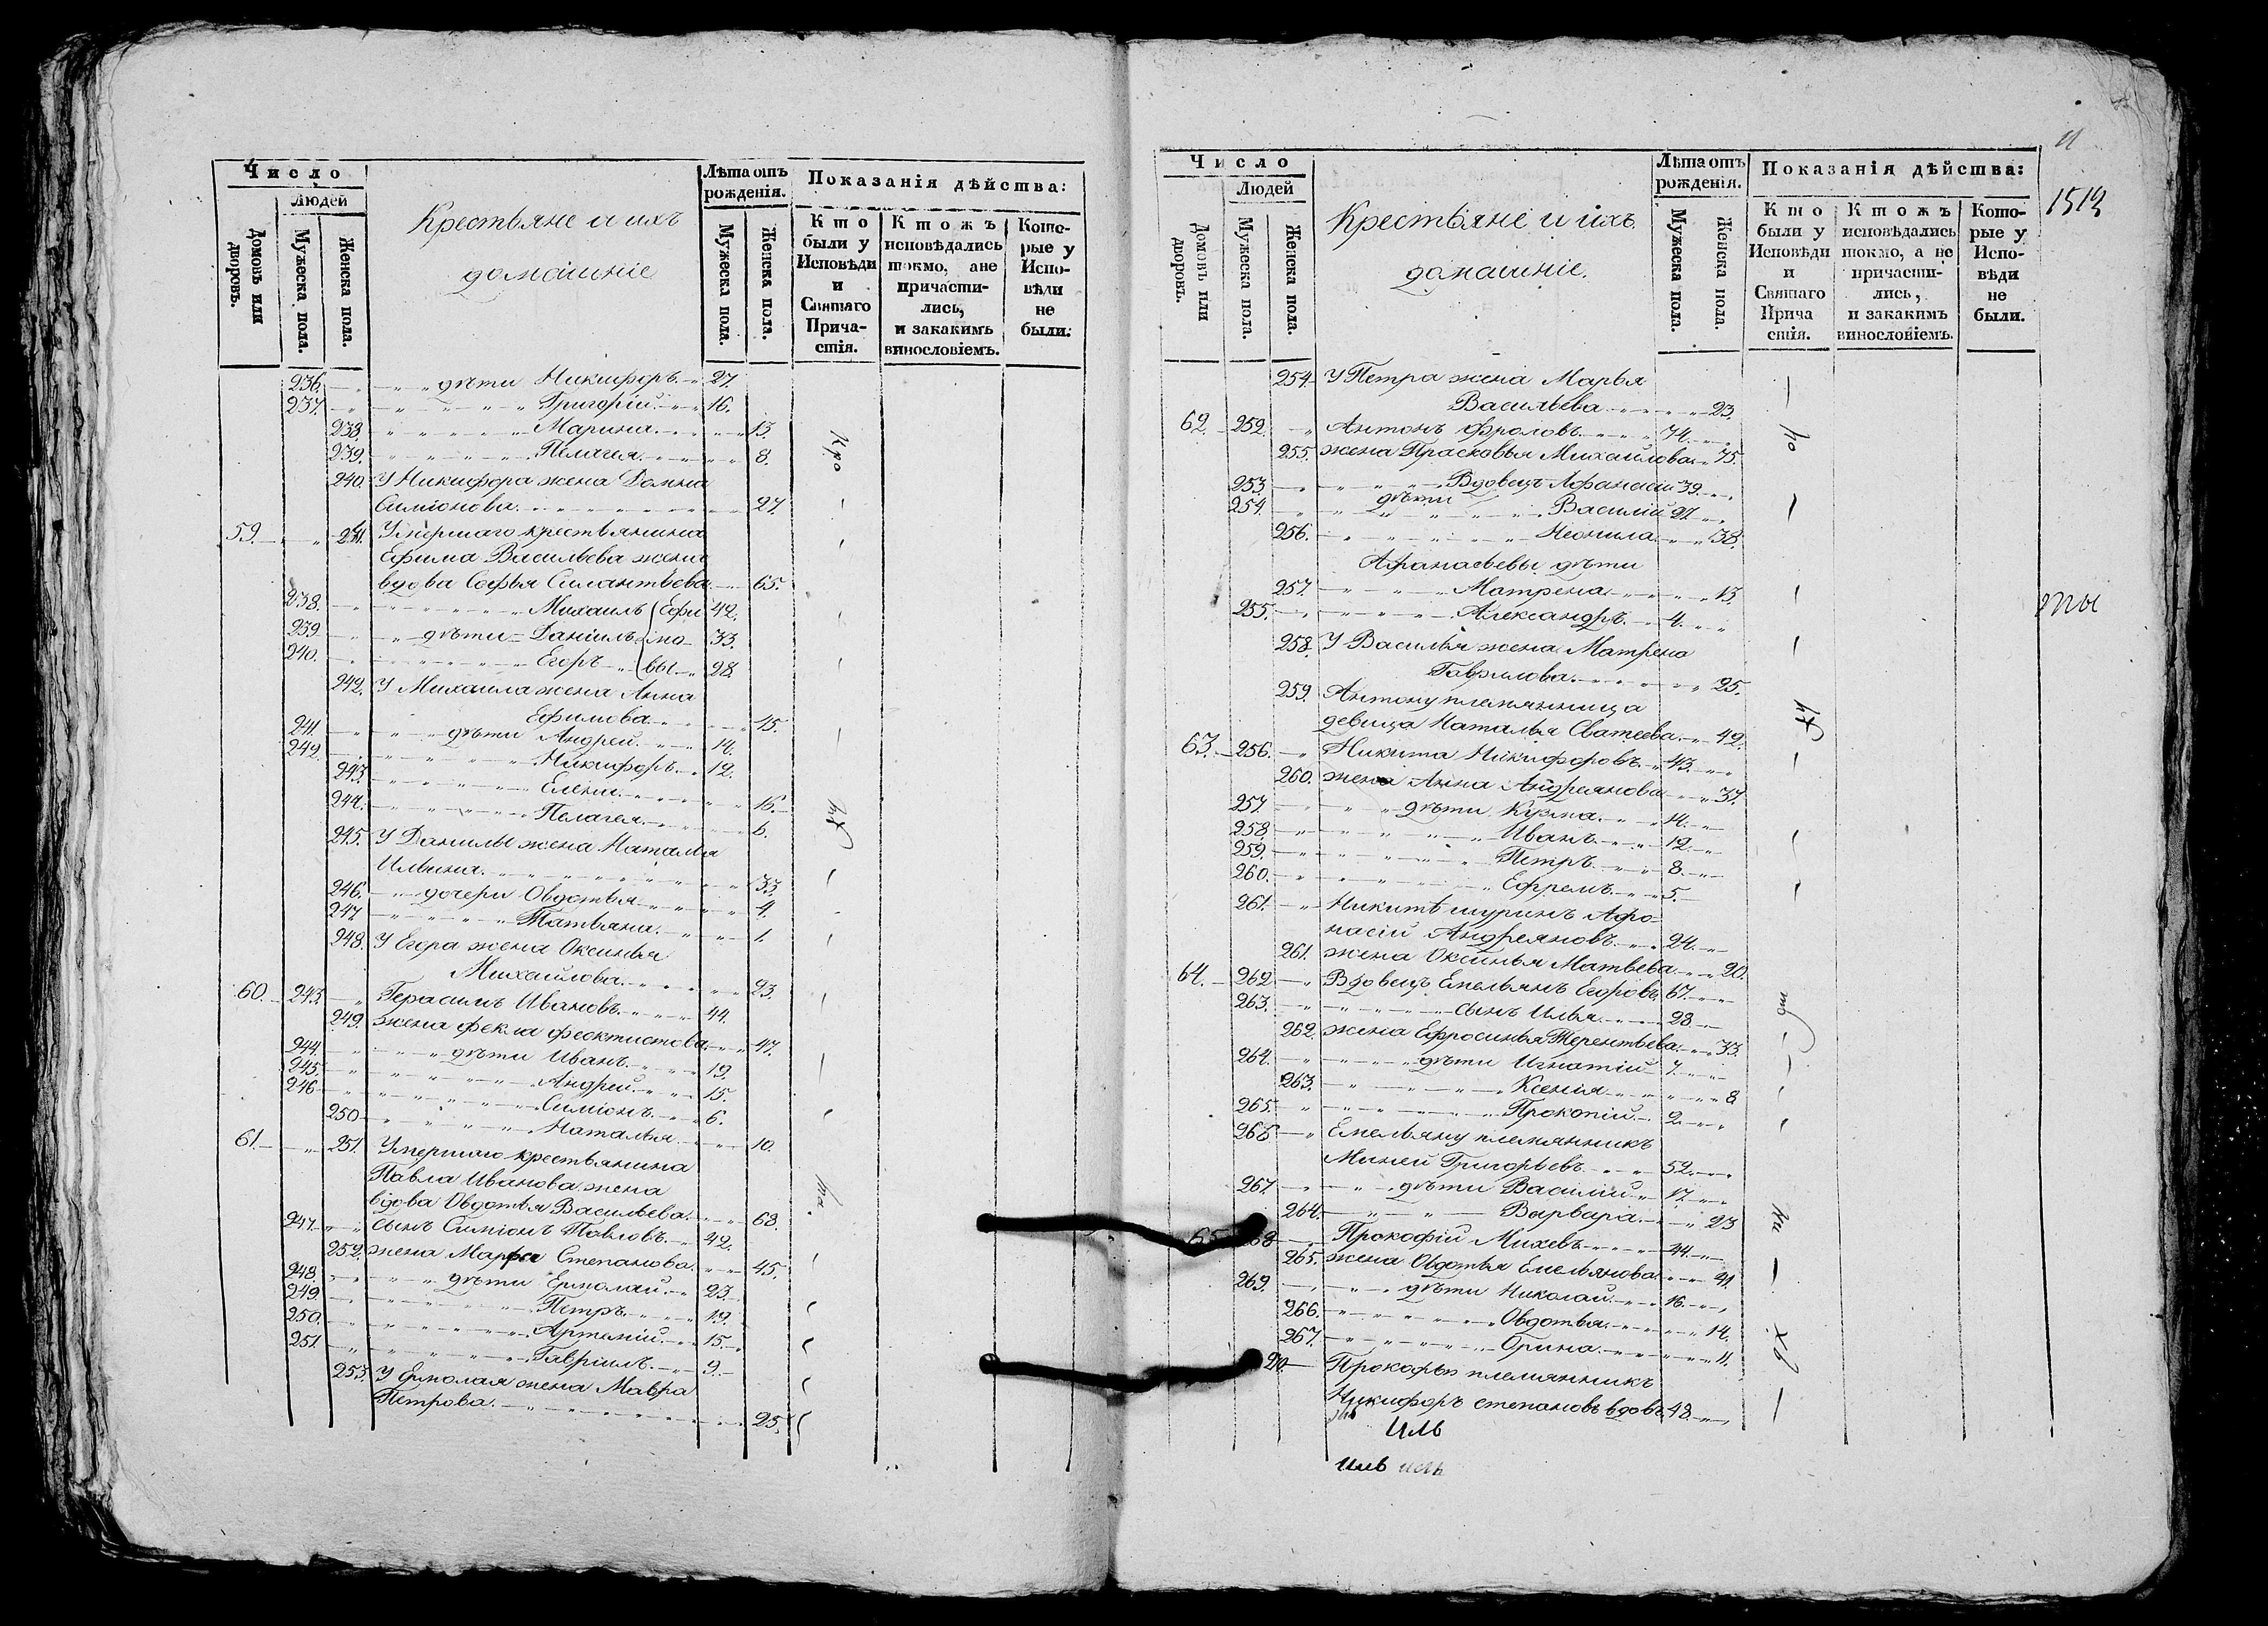 Число
Людей
Домовъ или дворовъ.
Мужеска пола.
Женска пола.
Крестьяне и ихъ
домашніе
Лѣта отъ рожденія.
Мужеска пола.
Женска пола.
Показанія дѣйства:
Кто были у Исповѣди и Святаго Прича-стія.
Ктожъ исповѣдались токмо, ане причасти-лись, и закакимъ винословіемъ.
Кото-рые у Испо-вѣди не были.
236. дѣти Никифоръ 27.
237. Григорій 16.
238. Марина 13.
239. Пелагея 8.
240. У Никифора жена Домна
Симіонова 27.
59. 241. Умершаго крестьянина
Ефима Васильева жена
вдова Софья Силантьева 65.
238. Михаилъ Ефи 42.
239. дѣти Даніилъ мо 33.
240. Егоръ вы 28.
242. У Михаила жена Анна
Ефимова 45.
241. дѣти Андрей 14.
242. Никифоръ 12.
243. Елена 16.
244. Пелагея 6.
245. У Данилы жена Наталья
Ильина 33.
246. дочери Овдотья 4.
247. Татьяна 1.
248. У Егора жена Оксинья
Михайлова 23.
60. 243. Герасимъ Ивановъ 44.
249. жена Фекла Феоктистова 47.
244. дѣти Иванъ 19.
245. Андрей 15.
246. Симіонъ 6.
250. Наталья 10.
61. 251. Умершаго крестьянина
Павла Иванова жена
вдова Овдотья Васильева 68.
247. сынъ Симіонъ Павловъ 42.
252. жена Марфа Степанова 45.
248. дѣти Ермолай 23.
249. Петръ 19.
250. Артемій 15.
251. Гавріилъ 9.
253. У Ермолая жена Мавра
Петрова 25.
11
1513
Число
Людей
Домовъ или дворовъ.
Мужеска пола.
Женска пола.
Крестьяне и ихъ
домашніе.
Лѣта отъ рожденія.
Мужеска пола.
Женска пола.
Показанія дѣйства:
Кто были у Исповѣди и Святаго Прича стія.
Ктожъ исповѣдались токмо, а не причасти-лись, и закакимъ винословіемъ.
Кото-рые у Испо-вѣди не были.
254. У Петра жена Марья
Васильева 23.
62. 252. Антонъ Фроловъ 74.
255. жена Прасковья Михайлова 75.
253. Вдовецъ Афанасій 39.
254. дѣти Василій 27.
256. Неонила 38.
Афанасьевы дѣти
257. Матрена 13.
255. Александръ 4.
258. У Василья жена Матрена
Гаврилова 25.
259. Антону племянница
девица Наталья Сватеева 42.
63. 256. Никита Никифоровъ 43.
260. жена Анна Андреянова 37.
257. дѣти Кузма 14.
258. Иванъ 12.
259. Петръ 8.
260. Ефремъ 5.
261. Никитѣ шуринъ Афо-
насій Андреяновъ 24.
261. жена Оксинья Матвева 20.
64. 262. Вдовецъ Емельянъ Егоровъ 67.
263. сынъ Илья 28.
262. жена Ефросинья Терентьева 33.
264. дѣти Игнатій 7.
263. Ксенія 8
265. Прокопій 2.
266. Емельяну племянникъ
Миней Григорьевъ 52.
267. дѣти Василій 17.
264. Варвара 23
65. 268. Прокофій Михевъ 44.
265. жена Овдотья Емельянова 41.
269. дѣти Николай 16.
266. Овдотья 14.
267. Орина 11.
270. Прокофью племянникъ
Никифоръ Степановъ вдовъ 48.